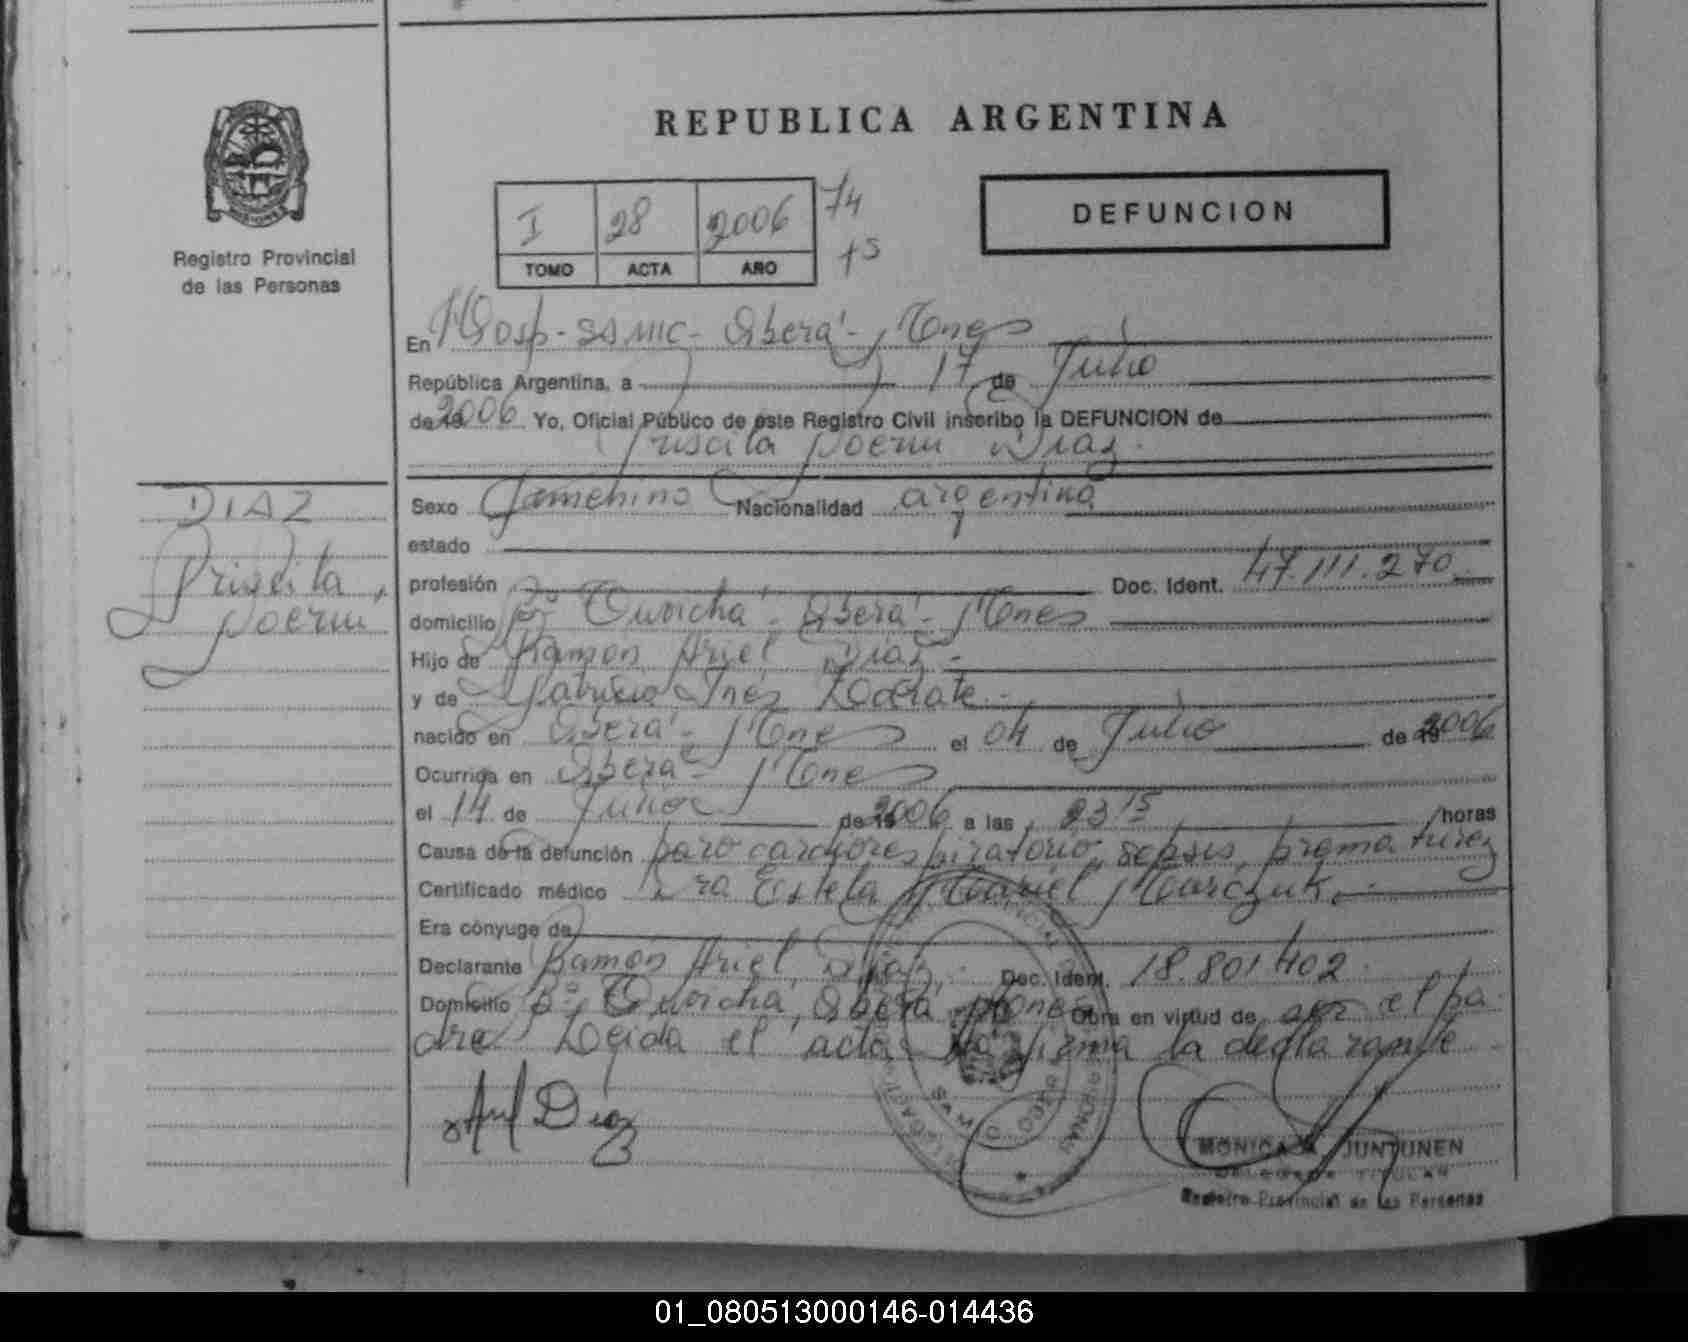 REPUBLICA ARGENTINA
Registro Provincial
de las Personas
I 28 2006 74
TOMO ACTA AÑO 75
DEFUNCION
En Hosp-SAMIC- Oberá- Mnes
República Argentina, a 17 de Julio
de 19 2006 Yo, Oficial Público de este Registro Civil inscribo la DEFUNCION de
Priscila Noemi Diaz.
DIAZ
Priscila,
Noemi
Sexo Femenino Nacionalidad argentina
estado
profesión Doc. Ident. 47.111.270
domicilio Bº Oberá- Mnes
Hijo de Ramón Ariel Diaz-
y de Inés
nacido en Oberá- Mnes el 04 de Julio de 19 2006
Ocurrida en Oberá- Mnes
el 14 de Julio de 19 2006 a las 23 15 horas
Causa de la defunción paro cardiorespiratorio, sepsis, prematurez
Certificado médico Dra Estela Mariel Marczuk.-
Era cónyuge de
Declarante Ramón Ariel Diaz, Doc. Ident. 18.801.402
Domicilio Bº Oberá Mnes Obra en virtud de ser el pa-
dre Leida el acta la firma la declarante
Ariel Diaz
S.A.M.I.C.
MONICA JUNTUNEN
DELEGADA TITULAR
Registro Provincial de las Personas
01_080513000146-014436